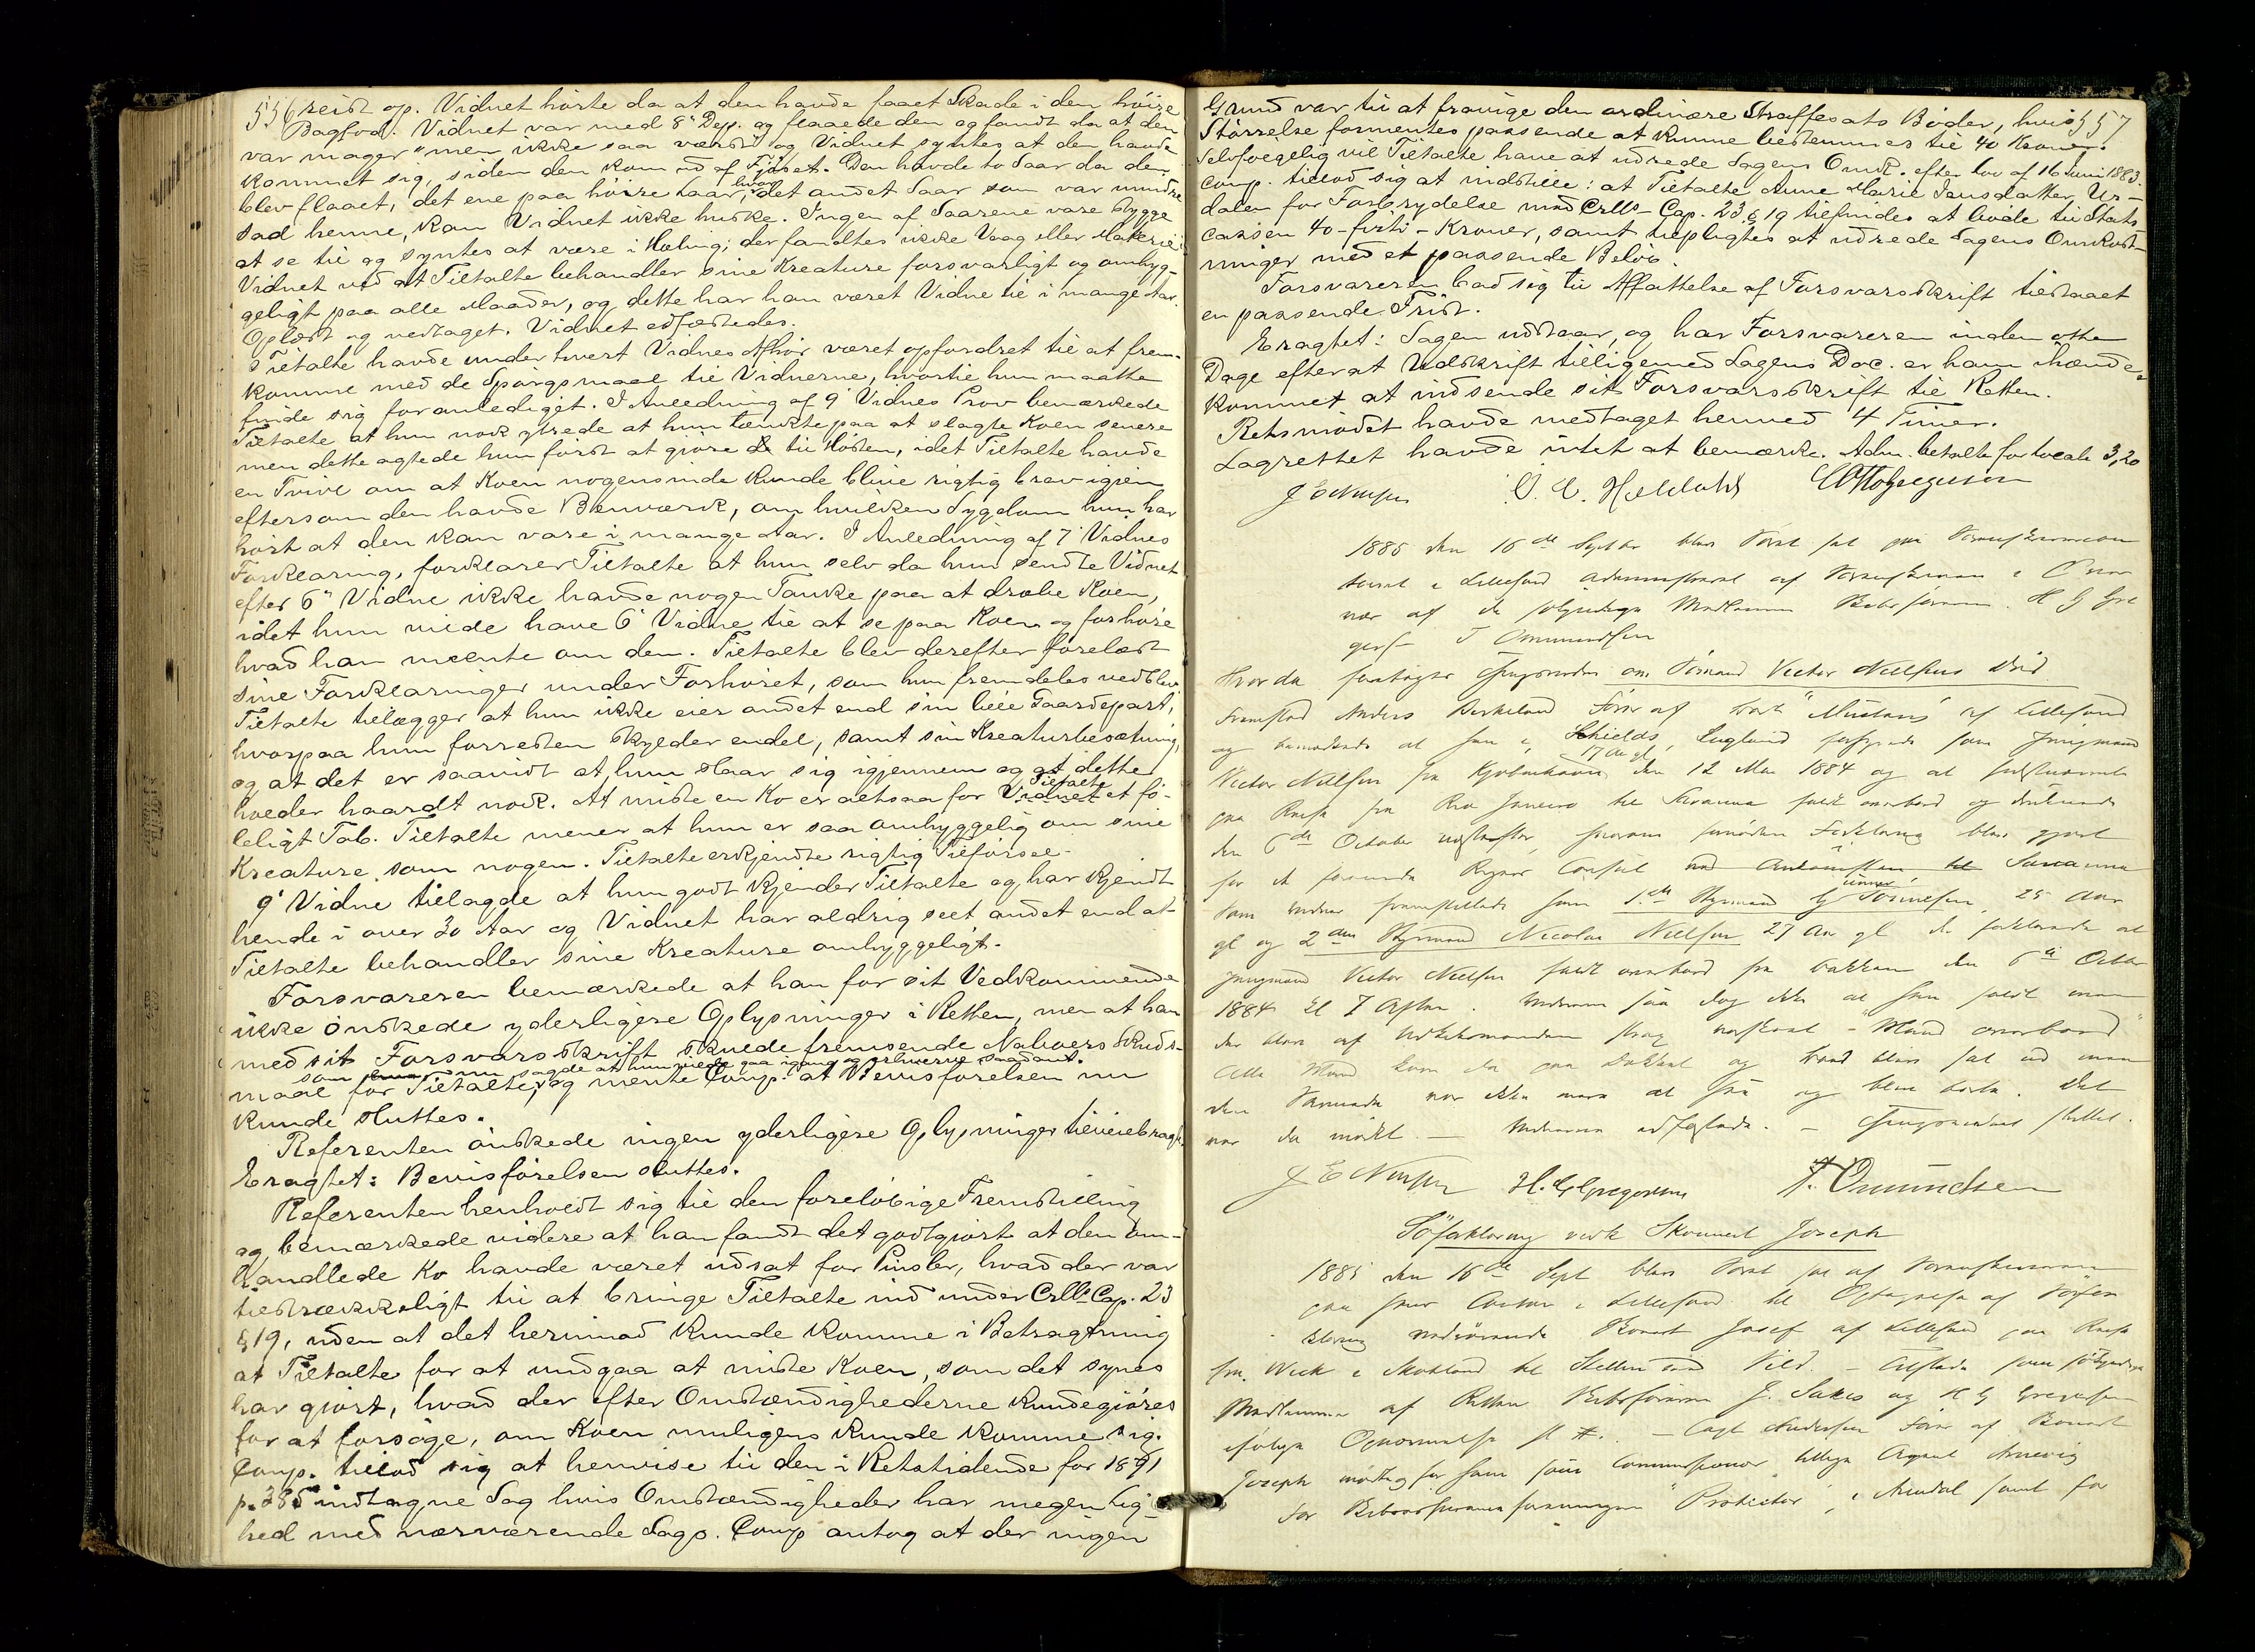 556 reist op. Vidnet hörte da at den havde faaet Skade i den höire
Bagfod. Vidnet var med 8' Dep. og flaaede den og fandt da at den
var mager "men ikke saa værst" og Vidnet syntes at den havde
kommet sig, siden den kom ud af Fjöset. Den havde to Saar da den
blev flaaet, det ene paa höire Laar, hvor det andet Saar som var mindre
sad henne, kan Vidnet ikke huske. Ingen af Saarene vare stygge
at se til og syntes at være i Heling; der fandtes ikke Vaag eller Materie
Vidnet ved at Tiltalte behandler sine Kreature forsvarligt og omhyg-
geligt paa alle Maader, og dette har han været Vidne til i mange Aar.
Oplæst og vedtaget. Vidnet edfæstedes.
Tiltalte havde under hvert Vidnes Afhör været opfordret til at frem-
komme med de Spörgsmaal til Vidnerne, hvortil hun maatte
finde sig foranlediget. I Anledning af 9' Vidnes Prov bemærkede
Tiltalte at hun nok ytrede at hun tænkte paa at slagte Koen senere
men dette agtede hun först at gjöre til Hösten, idet Tiltalte havde
en Tvivl om at Koen nogensinde kunde blive rigtig brav igjen
eftersom den havde Benværk, om hvilken Sygdom hun har
hört at den kan vare i mange Aar. I Anledning af 7' Vidnes
Forklaring, forklarer Tiltalte at hun selv da hun sendte Vidnet
efter 6' Vidne ikke havde nogen Tanke paa at dræbe Koen,
idet hun vilde have 6' Vidne til at se paa Koen og forhöre
hvad han meente om den. Tiltalte blev derefter forelæst
sine Forklaringer under Forhöret, som hun fremdeles vedblev.
Tiltalte tillægger at hun ikke eier andet end sin lille Gaardepart,
hvorpaa hun forresten skylder endel, samt sin Kreaturbesætning,
og at det er saavidt at hun slaar sig igjennem og at dette
holder haardt nok. At miste en Ko er altsaa for Vidnet Tiltalte et fö-
leligt Tab. Tiltalte mener at hun er saa omhyggelig om sine
Kreature som nogen. Tiltalte erkjendte rigtig Tilförsel.
9' Vidne tilagde at hun godt kjender Tiltalte og har kjendt
hende i over 30 Aar og Vidnet har aldrig seet andet end at
Tiltalte behandler sine Kreature omhyggeligt.
Forsvareren bemærkede at han for sit Vedkommende
ikke önskede yderligere Oplysninger i Retten, men at han
med sit Forsvarsskrift skulde fremsende Naboers Skuds-
som nu sagde at hun vilde gaa igang og erhverve saadant.
maal for Tiltalte, og mente Comp. at Bevisförelsen nu
kunde sluttes.
Referenten önskede ingen yderligere Oplysninger tilveiebragt.
Eragtet: Bevisförelsen sluttes.
Referenten henholdt sig til den forelöbige Fremstilling
og bemærkede videre at han fandt det godtgjort at den om-
handlede Ko havde været udsat for Pinsler, hvad der var
tilstrækkeligt til at bringe Tiltalte ind under Crll's Cap. 23
§ 19, uden at det herimod kunde komme i Betragtning
at Tiltalte for at undgaa at miste Koen, som det synes
har gjort, hvad der efter Omstændighederne kunde gjöres
for at forsöge, om Koen muligens kunde komme sig.
Comp. tillod sig at henvise til den i Retstidende for 1871
p. 285 indtagne Sag hvis Omstændigheder har megen Lig-
hed med nærværende Sags. Comp antog at der ingen
Grund var til at fravige den ordinære Straffesats Böder, hvis 557
Störrelse formentes passende at kunne bestemmes til 40 Kroner.
Selvfölgelig vil Tiltalte have at udrede Sagens Omk. efter Lov af 16 Juni 1883.
Comp. tillod sig at indstille: at Tiltalte Anne Marie Jensdatter Ur-
dalen for Forbrydelse mod Crlls - Cap. 23 § 19 tilfindes at bode til Stats-
cassen 40 - firti - Kroner, samt tilpligtes at udrede Sagens Omkost-
ninger med et passende Belöb.
Forsvareren bad sig til Affattelse af Forsvarsskrift tilstaaet
en passende Frist.
Eragtet: Sagen udstaar, og har Forsvareren inden otte
Dage efterat Udskrift tilligemed Sagens Doc. er ham ihænde-
kommet at indsende sit Forsvarsskrift til Retten.
Retsmödet havde medtaget henved 4 Timer.
Lagrettet havde intet at bemærke. Adm. betalte for Locale 3,20
1885 den 16de Septbr blev Söret sat paa
i Lillesand administreret af
nær af de Medlemmer H G Gre
gers- T Ommundsen
Hvor da foretoges Thingsvidne om Jömand Victor Nielsens Död
Fremstod Anders Berkeland Förer af Bark "Mustang" af Lillesand
og bemærkede at han i Shields, England forhyrede som Jungmand
Victor Nielsen fra Kjöbenhavn, 17 Aar gl den 12 Mai 1884 og at
paa Reise fra Rio Janeiro til Savanna faldt overbord og druknede
den 6de October næstefter, hvorom Forklaring blev gjort
for det Consul Savanna
Som Vidner fremstillede han 1ste Styrmand G Tönnesen, 25 Aar
gl og 2den Styrmand Nicolai Nielsen 27 Aar gl de forklarede at
Jungmand Victor Nielsen faldt overbord fra bakken den 6te Octbr
1884 Kl 7 Aften. Vidnerne saa dog ikke at han faldt men
der blev af Udkiksmanden strax varskoet - "Mand overbord"
Alle Mand kom da paa Dækket og Baad blev sat ud men
den var ikke mere at se og blev borte. Det
var da mörkt. - Vidnerne edfæstede. - Thingsvidnet sluttet.
H. G Gregersen T. Omundsen
Söforklaring vedk Skonnert Joseph
1885 den 16de Sept blev Söret sat af
paa sit Contor i Lillesand til Optagelse af Söfor
klaring vedrörende Skonnert Josef af Lillesand paa Reise
fra Wick i Skotland til Stettin med Sild. - Tilstede som
Medlemmer af Retten Skibsförerne J. Sakes og H G Gregersen
ifölge Opnævnelse - Capt Andersen Förer af Skonnert
Joseph mödte, for ham som Commissionær tillige Agent Arnevig
for Skibsassuranceforeningen "Protector", i Arendal samt for